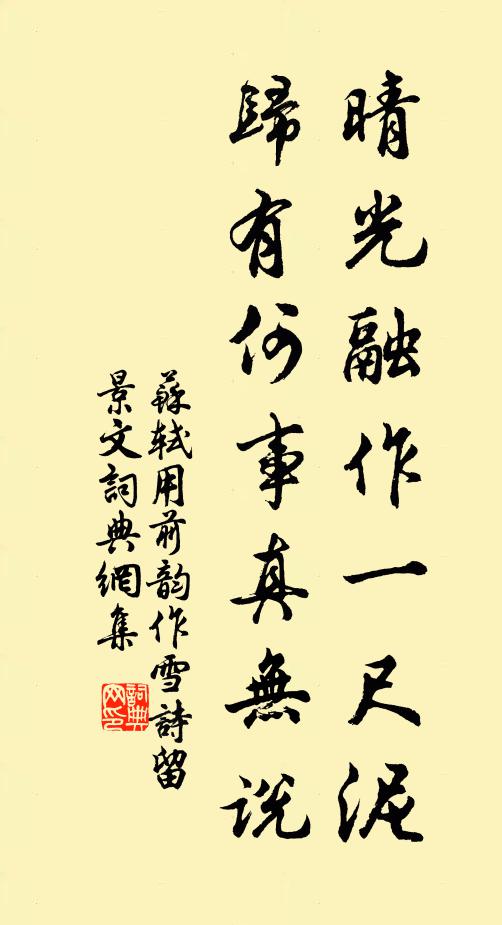 晴光融作一尺泥
歸有何事真無說
蘇軾用前韵作雪詩留
景文詞典網集
詞典网印